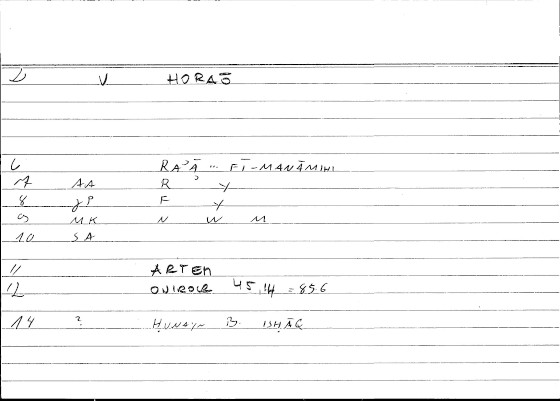 2 V HORAŌ
6 RAʾĀ ... FĪ-MANĀMIHI
7 AA R ʾ Y
8 JP F Y
9 MK N W M
10 SA
11 ARTEM
12 ONIROCR 45,14 = 85.6
14 ? ḤUNAYN B. ISḤĀQ